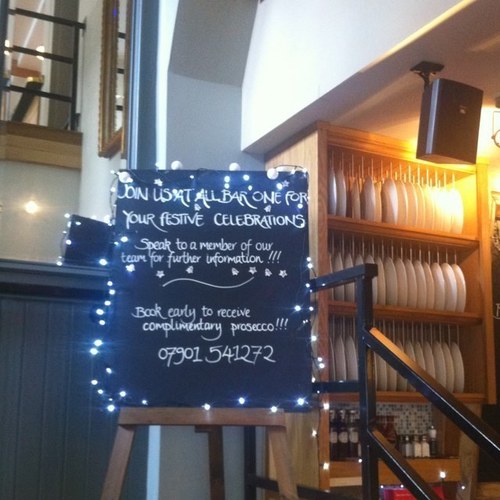 JOIN US AT ALL BAR ONE FOR
YOUR FESTIVE CELEBRATIONS
Speak to a member of our
team for further information !!!
Book early to receive
complimentary prosecco!!!
07901 541272